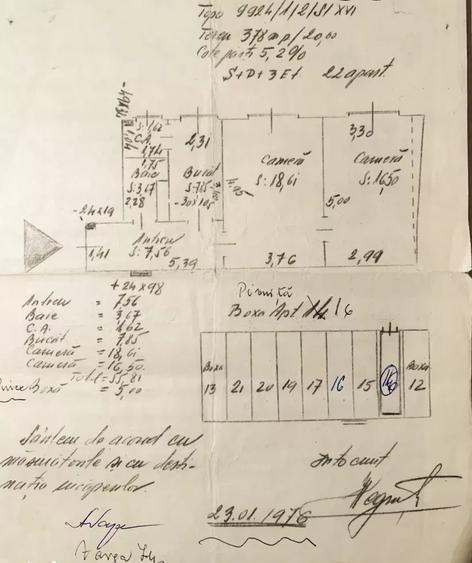 Topo 9924/1/2/S/XVI
Teren 378 mp/20,00
Cote parti 5,2%
S+D+3Et 22 apart.
S: 1,62
C.A.
1,74
1,75
Baie
S: 3,67
2,28
2,31
Bucat
S: 7,85
-30x105
4,95
Cameră
S: 18,61
3,76
3,30
Cameră
S: 16,50
5,00
2,99
-24x19
1,41
Antreu
S: 7,56
5,39
+24x98
Antreu = 7,56
Baie = 3,67
C.A. = 1,62
Bucăt = 7,85
Cameră = 18,61
Cameră = 16,50
Total = 55,81
Boxă = 5,00
Pivniță
Boxa Apt 14 16
Boxa 13 21 20 19 17 16 15 14 Boxa 12
Sântem de acord cu
măsurătorile si cu desti-
natia încăperilor.
Intocmit
23.01.1976
Varga